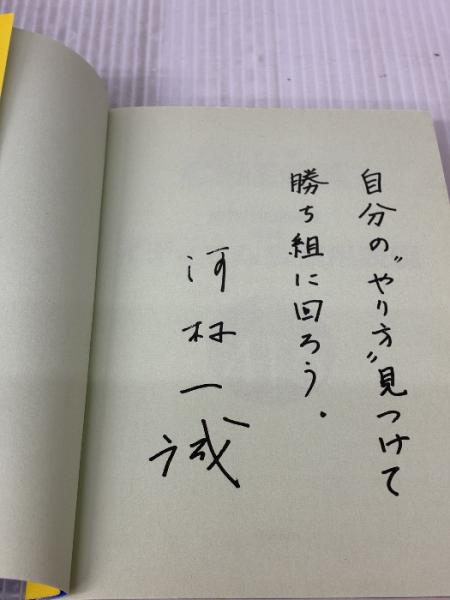 自分の〝やり方〟見つけて
勝ち組に回ろう.
河村一誠